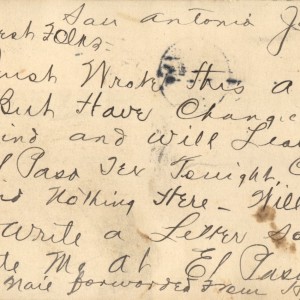 San Antonio J
est Folks
ust Wrote this a
But Have Change
ind and Will Lea
l Paso Tex Tonight
nd Nothing Here - Will
Write a Letter So
te Me At El Paso
Mail forwarded From